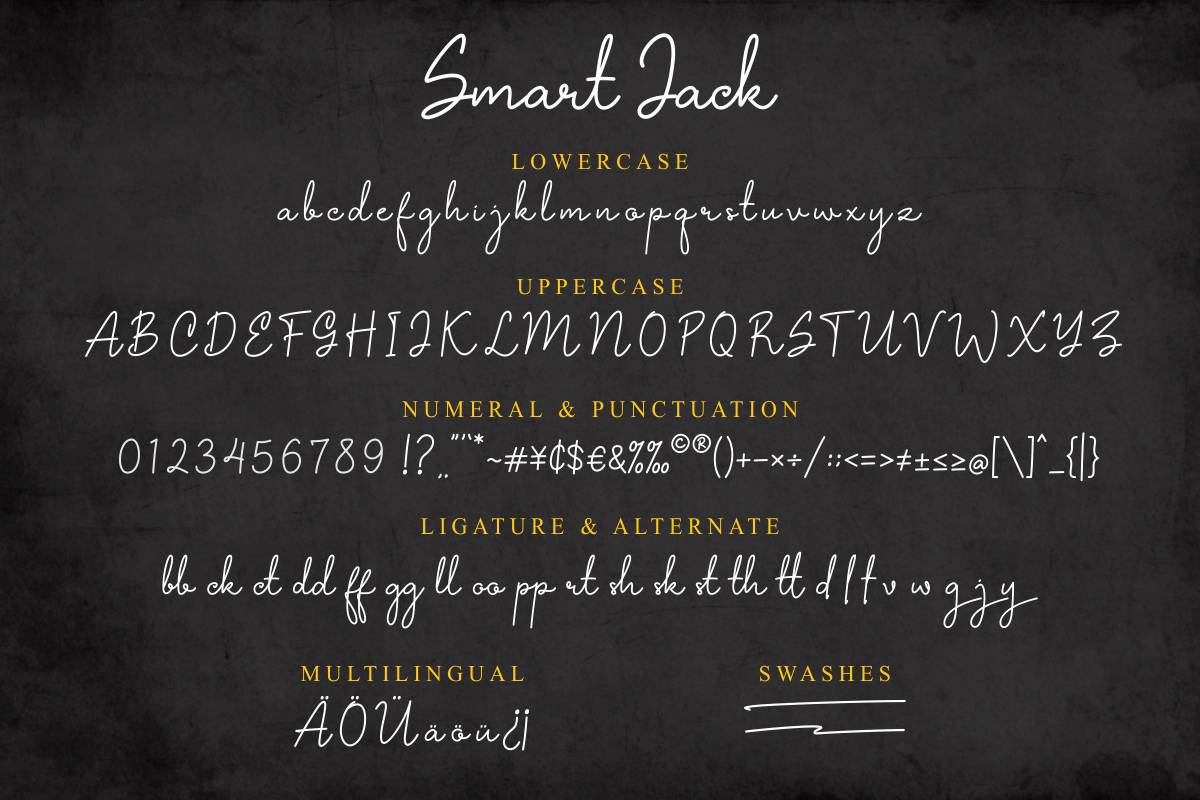 Smart Jack
LOWERCASE
abcdefghijklmnopqrstuvwxyz
UPPERCASE
ABCDEFGHIJKLMNOPQRSTUVWXYZ
NUMERAL & PUNCTUATION
0123456789 !?.,"''"*~#¥¢$€&%‰©®()+−×÷/:;<=>≠±≤≥@[\]^_{|}
LIGATURE & ALTERNATE
bb ck ct dd ff gg ll oo pp rt sh sk st th tt d l t v w g j y
MULTILINGUAL SWASHES
ÄÖÜäöü¿¡